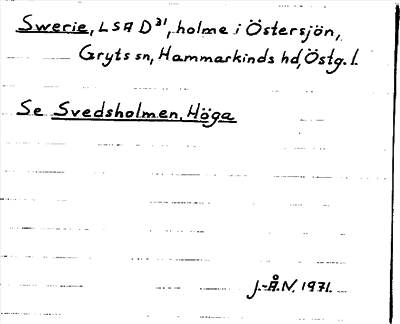 Swerie, LSA D³¹, holme i Östersjön,
Gryts sn, Hammarkinds hd, Östg. l.
Se Svedsholmen, Höga
J.-Å.N. 1971.